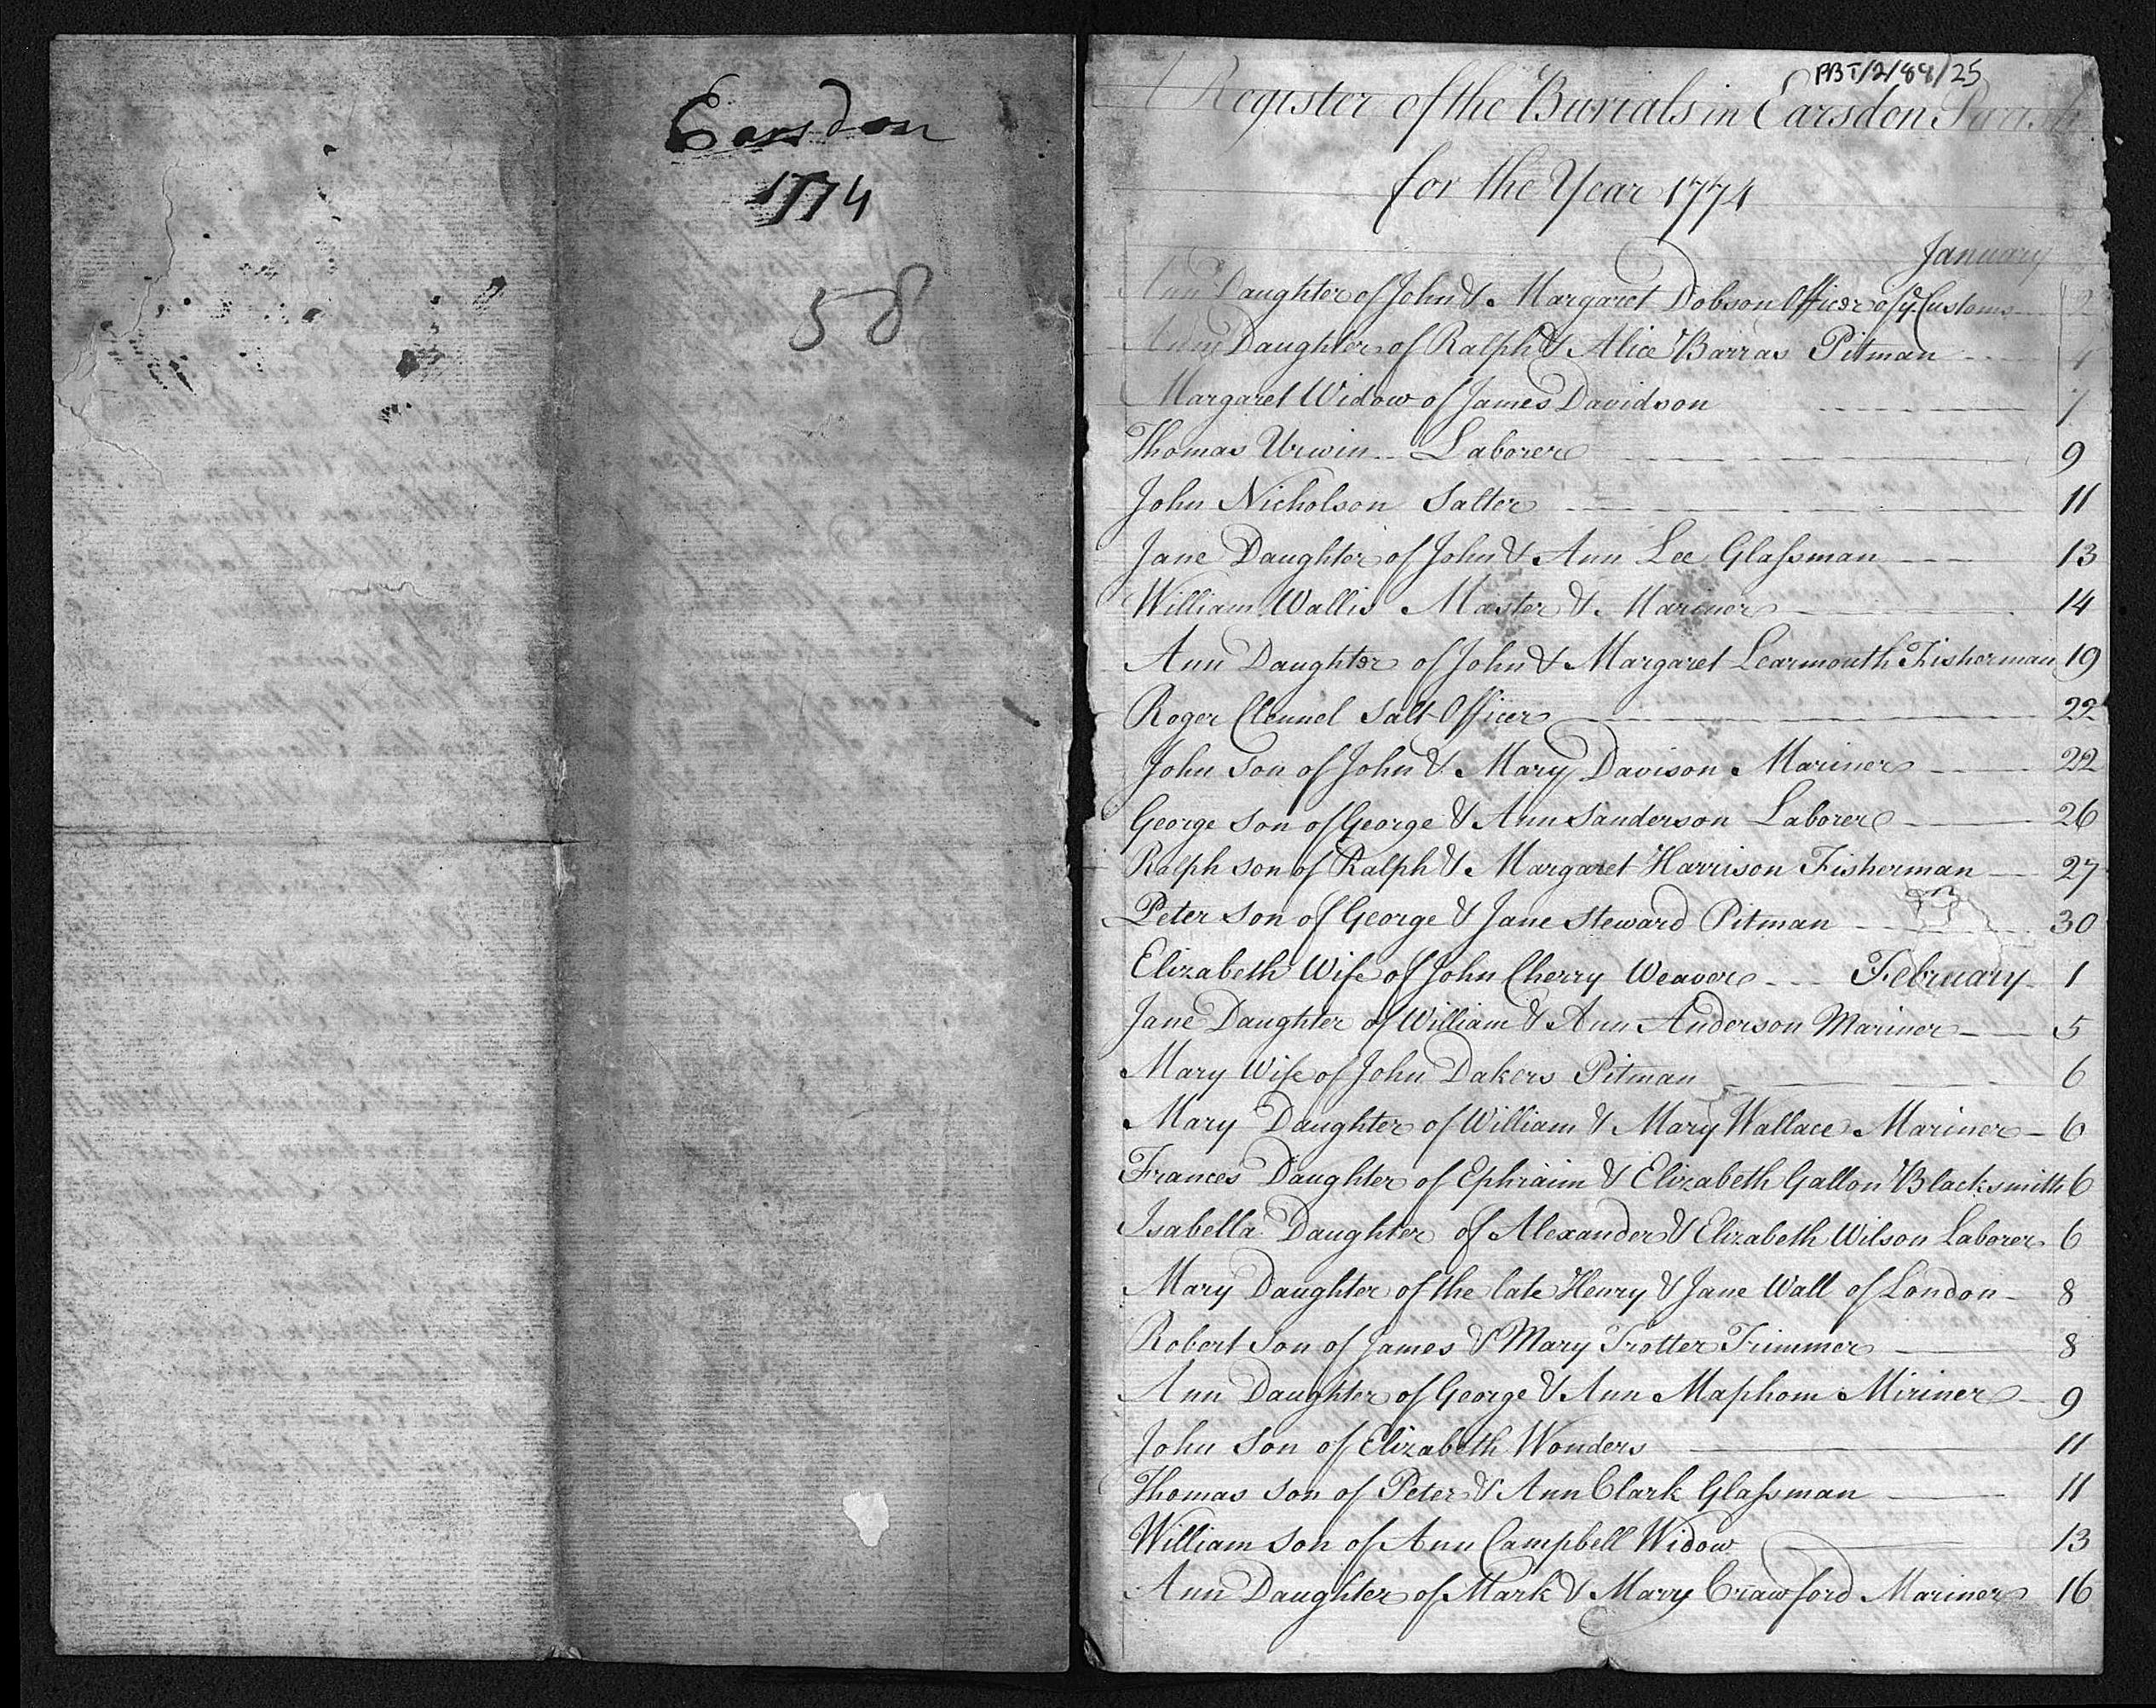 Earsdon
1774
58
PBT/2/88/25
A Register of the Burials in Earsdon Parish
for the Year 1774
January
Ann Daughter of John & Margaret Dobson Officer of ye Customs 2
Daughter of Ralph & Alice Barras Pitman 4
Margaret Widow of James Davidson 7
Thomas Urwin Laborer 9
John Nicholson Salter 11
Jane Daughter of John & Ann Lee Glaſsman 13
William Wallis Master & Mariner 14
Ann Daughter of John & Margaret Learmouth Fisherman 19
Roger Clennel Salt Officer 22
John Son of John & Mary Davison Mariner 22
George Son of George & Ann Sanderson Laborer 26
Ralph son of Ralph & Margaret Harrison Fisherman 27
Peter Son of George & Jane Steward Pitman 30
Elizabeth Wife of John Cherry Weaver February 1
Jane Daughter of William & Ann Anderson Mariner 5
Mary Wife of John Dakers Pitman 6
Mary Daughter of William & Mary Wallace Mariner 6
Frances Daughter of Ephraim & Elizabeth Gallon Blacksmith 6
Isabella Daughter of Alexander & Elizabeth Wilson Laborer 6
Mary Daughter of the late Henry & Jane Wall of London 8
Robert Son of James & Mary Trotter Trimmer 8
Ann Daughter of George & Ann Maphom Miriner 9
John Son of Elizabeth Wonders 11
Thomas Son of Peter & Ann Clark Glaſsman 11
William Son of Ann Campbell Widow 13
Ann Daughter of Mark & Mary Crawford Mariner 16